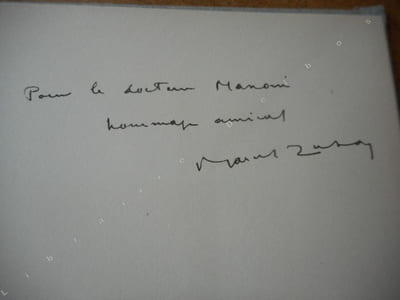 Pour le docteur Manoni
hommage amical
Marcel